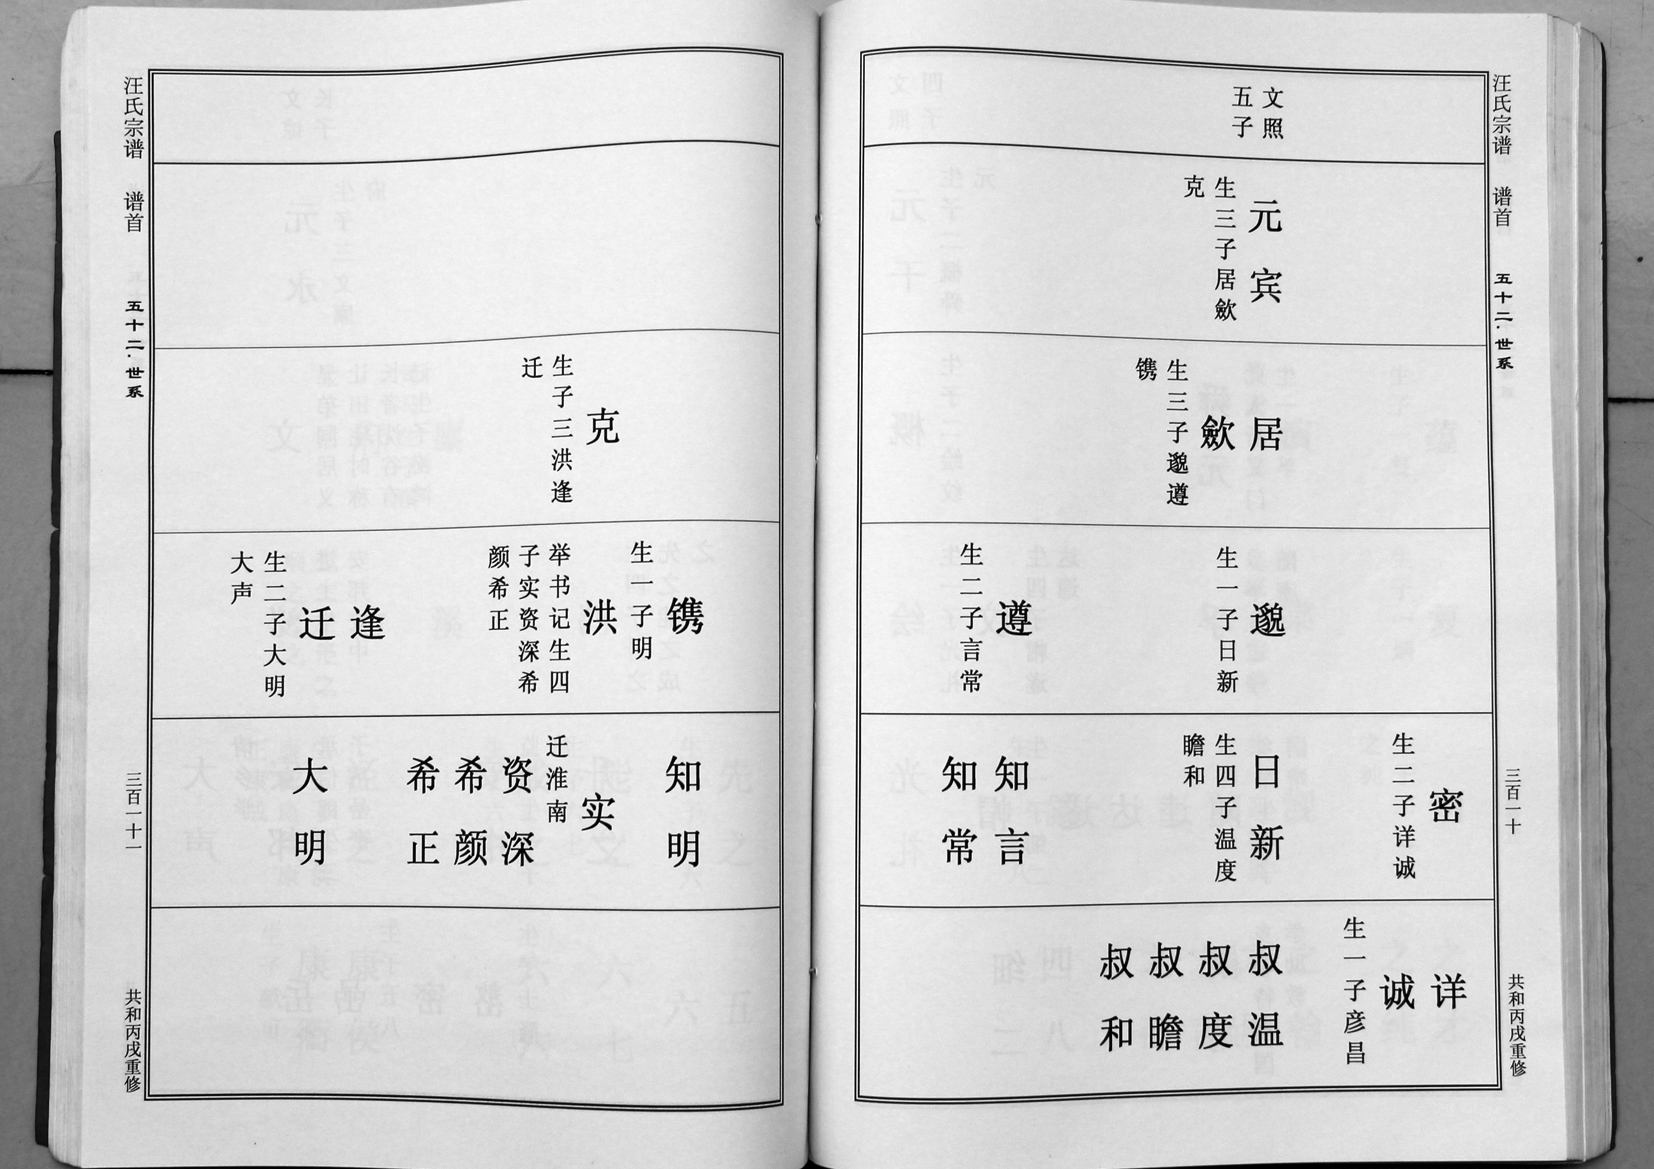 汪氏宗谱
谱首
五十二·世系
三百一十
共和丙戌重修
文照
五子
元宾
生三子居歛
克
居
歛
生三子邈遵
镌
邈
生一子日新
遵
生二子言常
密
生二子详诚
日新
生四子温度
瞻和
知言
知常
详
诚
生一子彦昌
叔温
叔度
叔瞻
叔和
汪氏宗谱
谱首
五十二·世系
三百一十一
共和丙戌重修
克
生子三洪逢
迁
镌
生一子明
洪
举书记生四
子实资深希
颜希正
逢
迁
生二子大明
大声
知明
实
迁淮南
资深
希颜
希正
大明